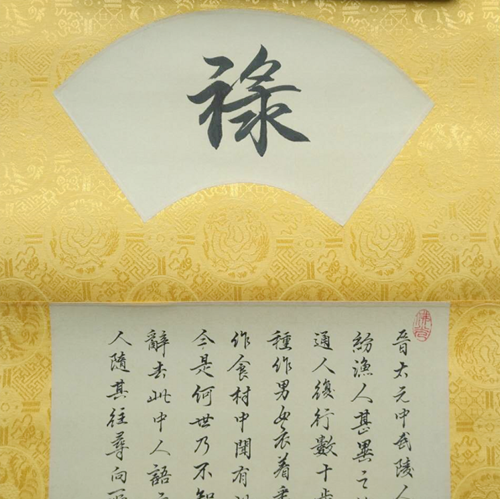 祿
晉太元中武陵人
紛漁人甚異之
通人復行數十步
種作男女衣着悉
作食村中聞有此
今是何世乃不知
辭去此中人語云
人隨其往尋向所